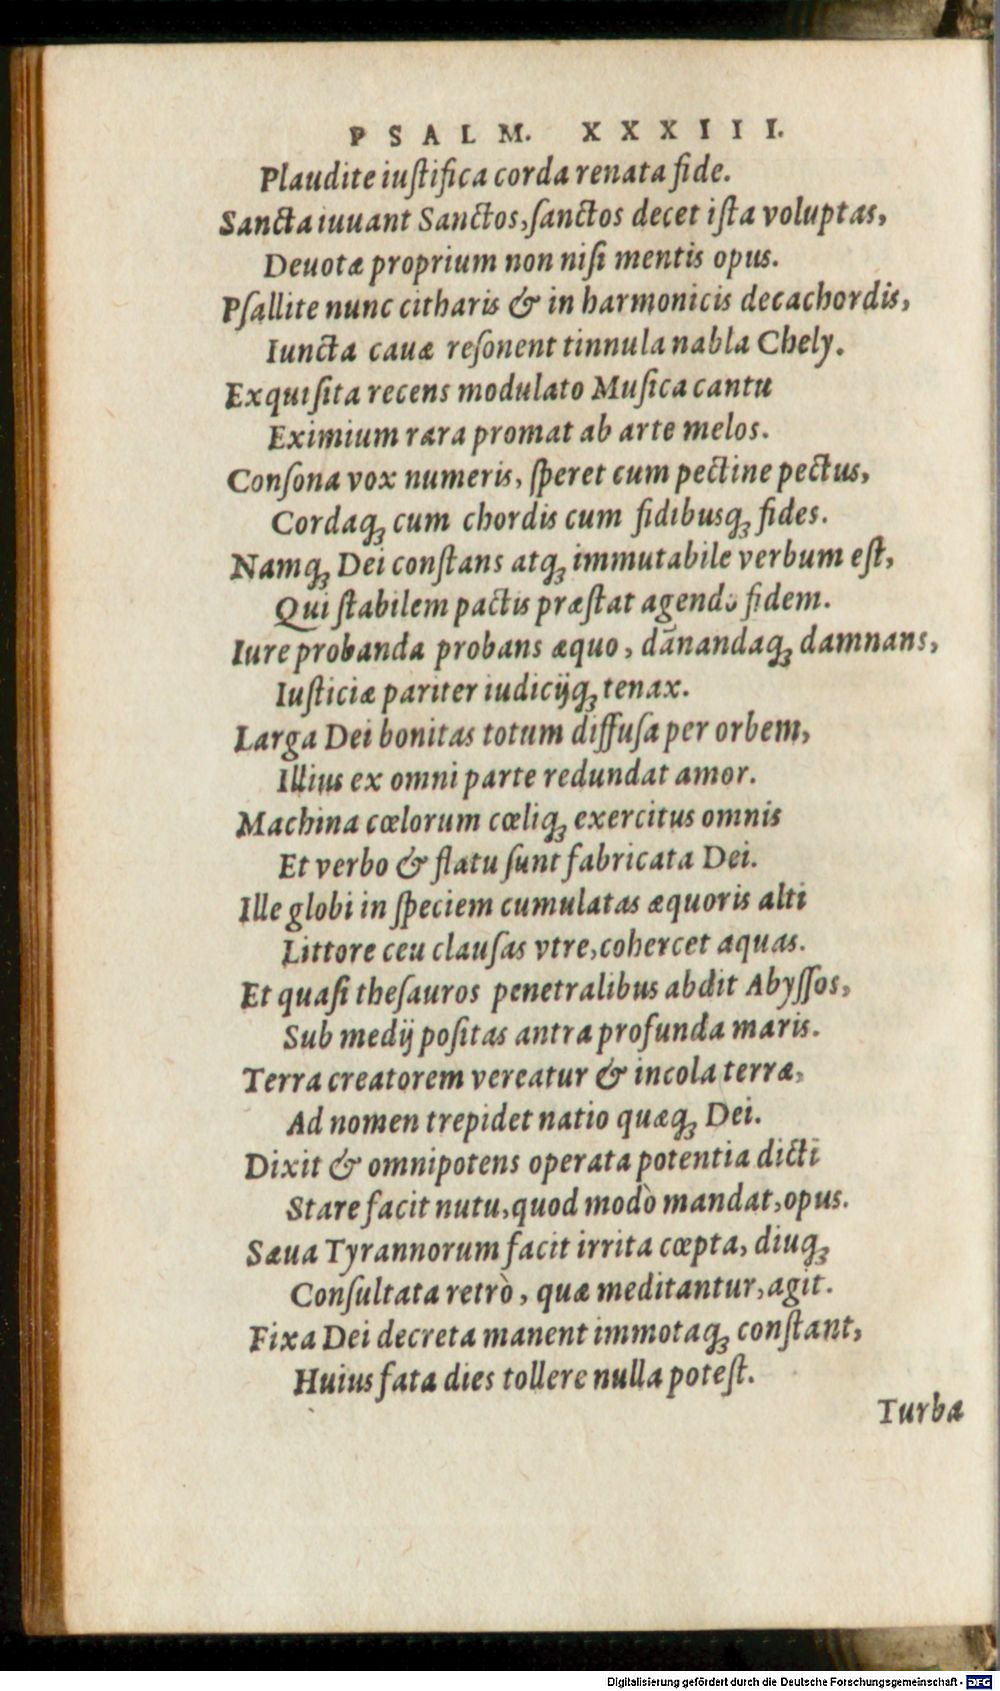 PSALM. XXXIII.
Plaudite iuſtifica corda renata fide.
Sancta iuuant Sanctos, ſanctos decet iſta voluptas,
Deuotæ proprium non niſi mentis opus.
Pſallite nunc citharis & in harmonicis decachordis,
Iuncta cauæ reſonent tinnula nabla Chely.
Exquiſita recens modulato Muſica cantu
Eximium rara promat ab arte melos.
Conſona vox numeris, ſperet cum pectine pectus,
Cordaqꝫ cum chordis cum fidibusqꝫ fides.
Namqꝫ Dei conſtans atqꝫ immutabile verbum eſt,
Qui ſtabilem pactis præſtat agendo fidem.
Iure probanda probans æquo, dānandaqꝫ damnans,
Iuſticiæ pariter iudicijqꝫ tenax.
Larga Dei bonitas totum diffuſa per orbem,
Illius ex omni parte redundat amor.
Machina cœlorum cœliqꝫ exercitus omnis
Et verbo & flatu ſunt fabricata Dei.
Ille globi in ſpeciem cumulatas æquoris alti
Littore ceu clauſas vtre, cohercet aquas.
Et quaſi theſauros penetralibus abdit Abyſſos,
Sub medij poſitas antra profunda maris.
Terra creatorem vereatur & incola terræ,
Ad nomen trepidet natio quæqꝫ Dei.
Dixit & omnipotens operata potentia dicti
Stare facit nutu, quod modò mandat, opus.
Sæua Tyrannorum facit irrita cœpta, diuqꝫ
Conſultata retrò, quæ meditantur, agit.
Fixa Dei decreta manent immotaqꝫ conſtant,
Huius fata dies tollere nulla poteſt.
Turba
Digitalisierung gefördert durch die Deutsche Forschungsgemeinschaft - DFG